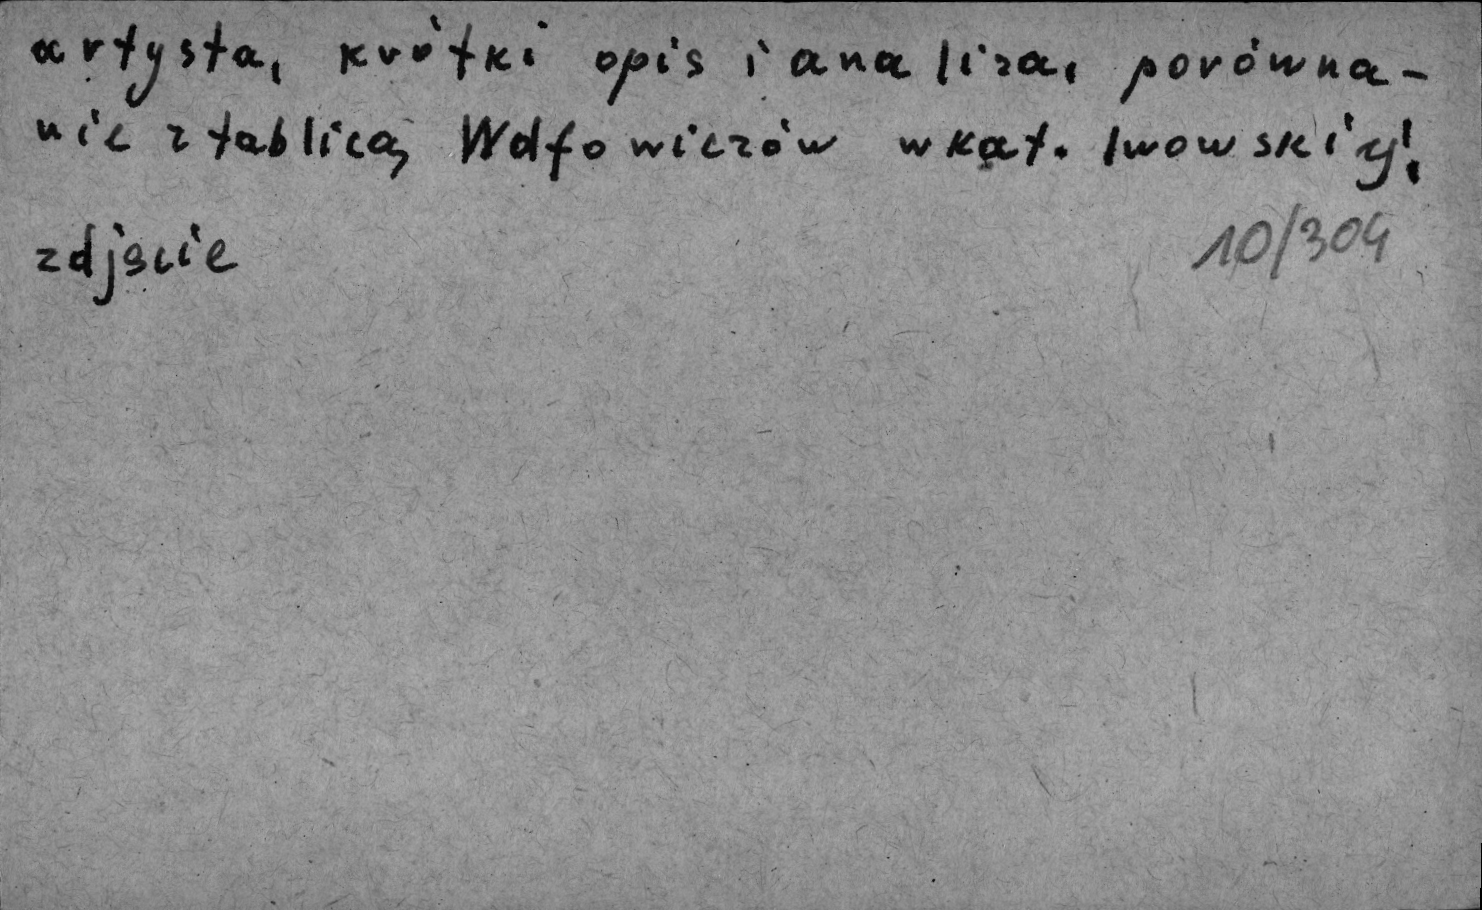 artysta, krótki opis i analiza, porówna-
nie z tablicą Wolfowiczów w kat. lwowskiej.
zdjście
10/304